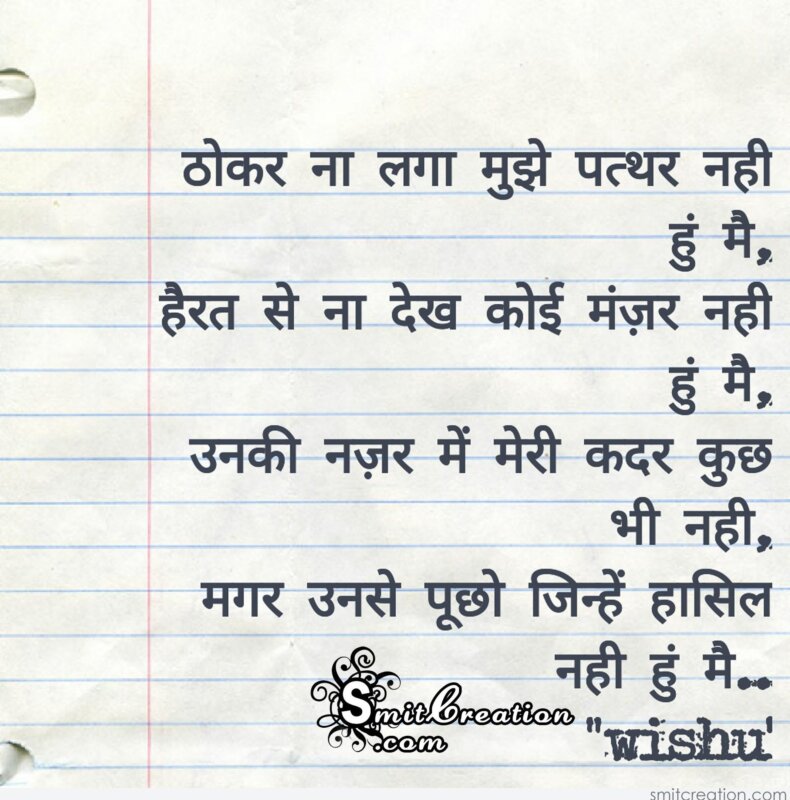 ठोकर ना लगा मुझे पत्थर नही
हुं मै,
हैरत से ना देख कोई मंज़र नही
हुं मै,
उनकी नज़र में मेरी कदर कुछ
भी नही,
मगर उनसे पूछो जिन्हें हासिल
नही हुं मै..
SmitCreation
.com
"wishu'
smitcreation.com